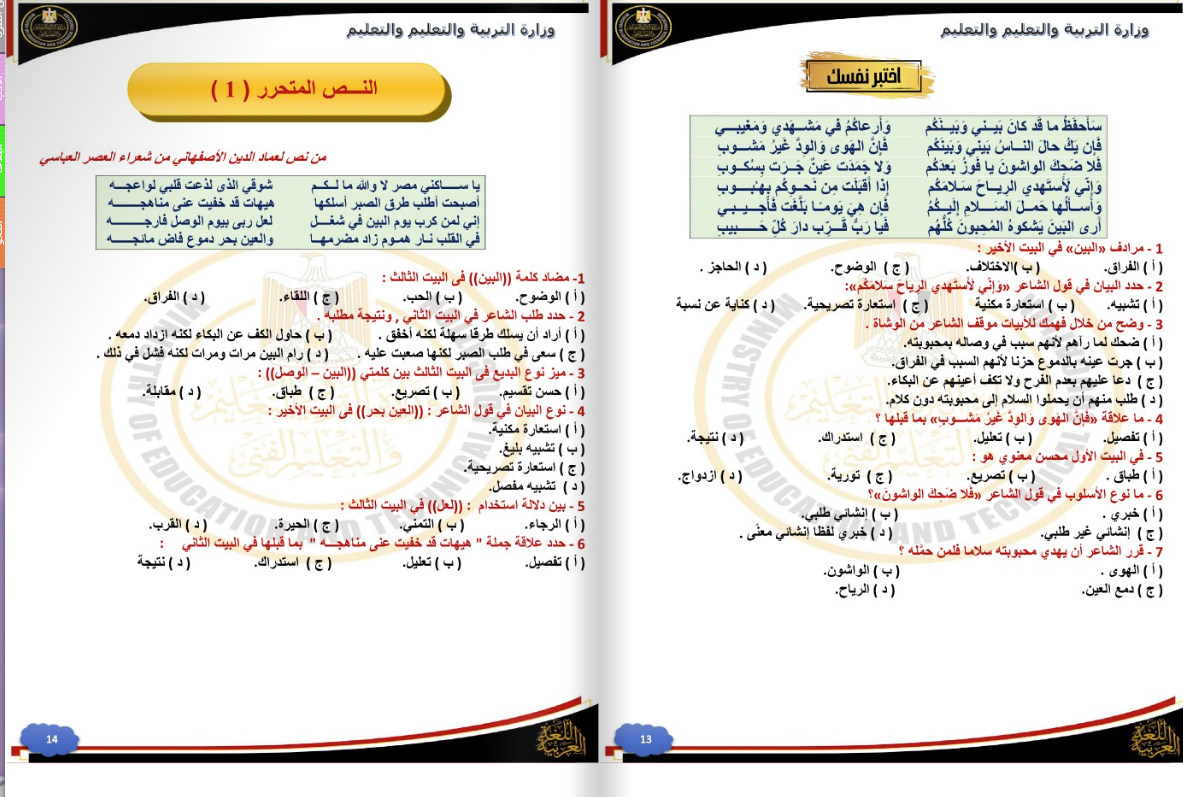 وزارة التربية والتعليم والتعليم
اختبر نفسك
سَأَحفَظُ ما قَد كانَ بَيـني وَبَيـنَكُم وَأَرعاكُمُ في مَشـهَدي وَمَغيبـي
فَإِن يَكُ حالَ النـاسُ بَيني وَبَينَكُم فَإِنَّ الهَوى وَالوِدَّ غَيرُ مَشـوبِ
فَلا ضَحِكَ الواشونَ يا فَوزُ بَعدَكُم وَلا جَمَدَت عَينٌ جَـرَت بِسُكـوبِ
وَإِنّي لَأَستَهدي الرِيـاحَ سَـلامَكُم إِذا أَقبَلَت مِن نَحـوِكُم بِهُبـوبِ
وَأَسـأَلُها حَمـلَ السَـلامِ إِلَيـكُمُ فَإِن هِيَ يَومـا بَلَّغَت فَأَجيـبي
أَرى البَينَ يَشكوهُ المُحِبونَ كُلُّهُم فَيا رَبُّ قَـرِّب دارَ كُلِّ حَـبيبِ
1 - مرادف «البين» في البيت الأخير :
( أ ) الفراق. ( ب )الاختلاف. ( ج ) الوضوح. ( د ) الحاجز .
2 - حدد البيان في قول الشاعر «وَإِنّي لَأستَهدي الرِياحَ سَلامَكُم»:
( أ ) تشبيه. ( ب ) استعارة مكنية ( ج ) استعارة تصريحية. ( د ) كناية عن نسبة
3 - وضح من خلال فهمك للأبيات موقف الشاعر من الوشاة .
( أ ) ضحك لما رآهم لأنهم سبب في وصاله بمحبوبته.
( ب ) جرت عينه بالدموع حزنا لأنهم السبب في الفراق.
( ج ) دعا عليهم بعدم الفرح ولا تكف أعينهم عن البكاء.
( د ) طلب منهم أن يحملوا السلام إلى محبوبته دون كلام.
4 - ما علاقة «فَإِنَّ الهَوى وَالوِدَّ غَيرُ مَشـوبِ» بما قبلها ؟
( أ ) تفصيل. ( ب ) تعليل. ( ج ) استدراك. ( د ) نتيجة.
5 - في البيت الأول محسن معنوي هو :
( أ ) طباق . ( ب ) تصريع. ( ج ) تورية. ( د ) ازدواج.
6 - ما نوع الأسلوب في قول الشاعر «فَلا ضَحِكَ الواشونَ»؟
( أ ) خبري . ( ب ) إنشائي طلبي.
( ج ) إنشائي غير طلبي. ( د ) خبري لفظا إنشائي معنًى .
7 - قرر الشاعر أن يهدي محبوبته سلاما فلمن حمَّله ؟
( أ ) الهوى . ( ب ) الواشون.
( ج ) دمع العين. ( د ) الرياح.
13
اللغة العربية
وزارة التربية والتعليم والتعليم
النـــص المتحرر ( 1 )
من نص لعماد الدين الأصفهاني من شعراء العصر العباسي
يا ســـاكني مصر لا والله ما لـكـم شوقي الذى لذعت قلبي لواعجـــه
أصبحت أطلب طرق الصبر أسلكها هيهات قد خفيت عنى مناهجـــه
إني لمن كرب يوم البين في شغـل لعل ربى بيوم الوصل فارجـــه
في القلب نـار همـوم زاد مضرمهـا والعين بحر دموع فاض مائجـــه
1- مضاد كلمة ((البين)) فى البيت الثالث :
( أ ) الوضوح. ( ب ) الحب. ( ج ) اللقاء. ( د ) الفراق.
2 - حدد طلب الشاعر في البيت الثاني , ونتيجة مطلبه .
( أ ) أراد أن يسلك طرقا سهلة لكنه أخفق . ( ب ) حاول الكف عن البكاء لكنه ازداد دمعه .
( ج ) سعى في طلب الصبر لكنها صعبت عليه . ( د ) رام البين مرات ومرات لكنه فشل في ذلك .
3 - ميز نوع البديع فى البيت الثالث بين كلمتي ((البين – الوصل)) :
( أ ) حسن تقسيم. ( ب ) تصريع. ( ج ) طباق. ( د ) مقابلة.
4 - نوع البيان في قول الشاعر : ((العين بحر)) فى البيت الأخير :
( أ ) استعارة مكنية.
( ب ) تشبيه بليغ.
( ج ) استعارة تصريحية.
( د ) تشبيه مفصل.
5 - بين دلالة استخدام : ((لعل)) في البيت الثالث :
( أ ) الرجاء. ( ب ) التمني. ( ج ) الحيرة. ( د ) القرب.
6 - حدد علاقة جملة " هيهات قد خفيت عنى مناهجـــه " بما قبلها في البيت الثاني :
( أ ) تفصيل. ( ب ) تعليل. ( ج ) استدراك. ( د ) نتيجة
14
اللغة العربية